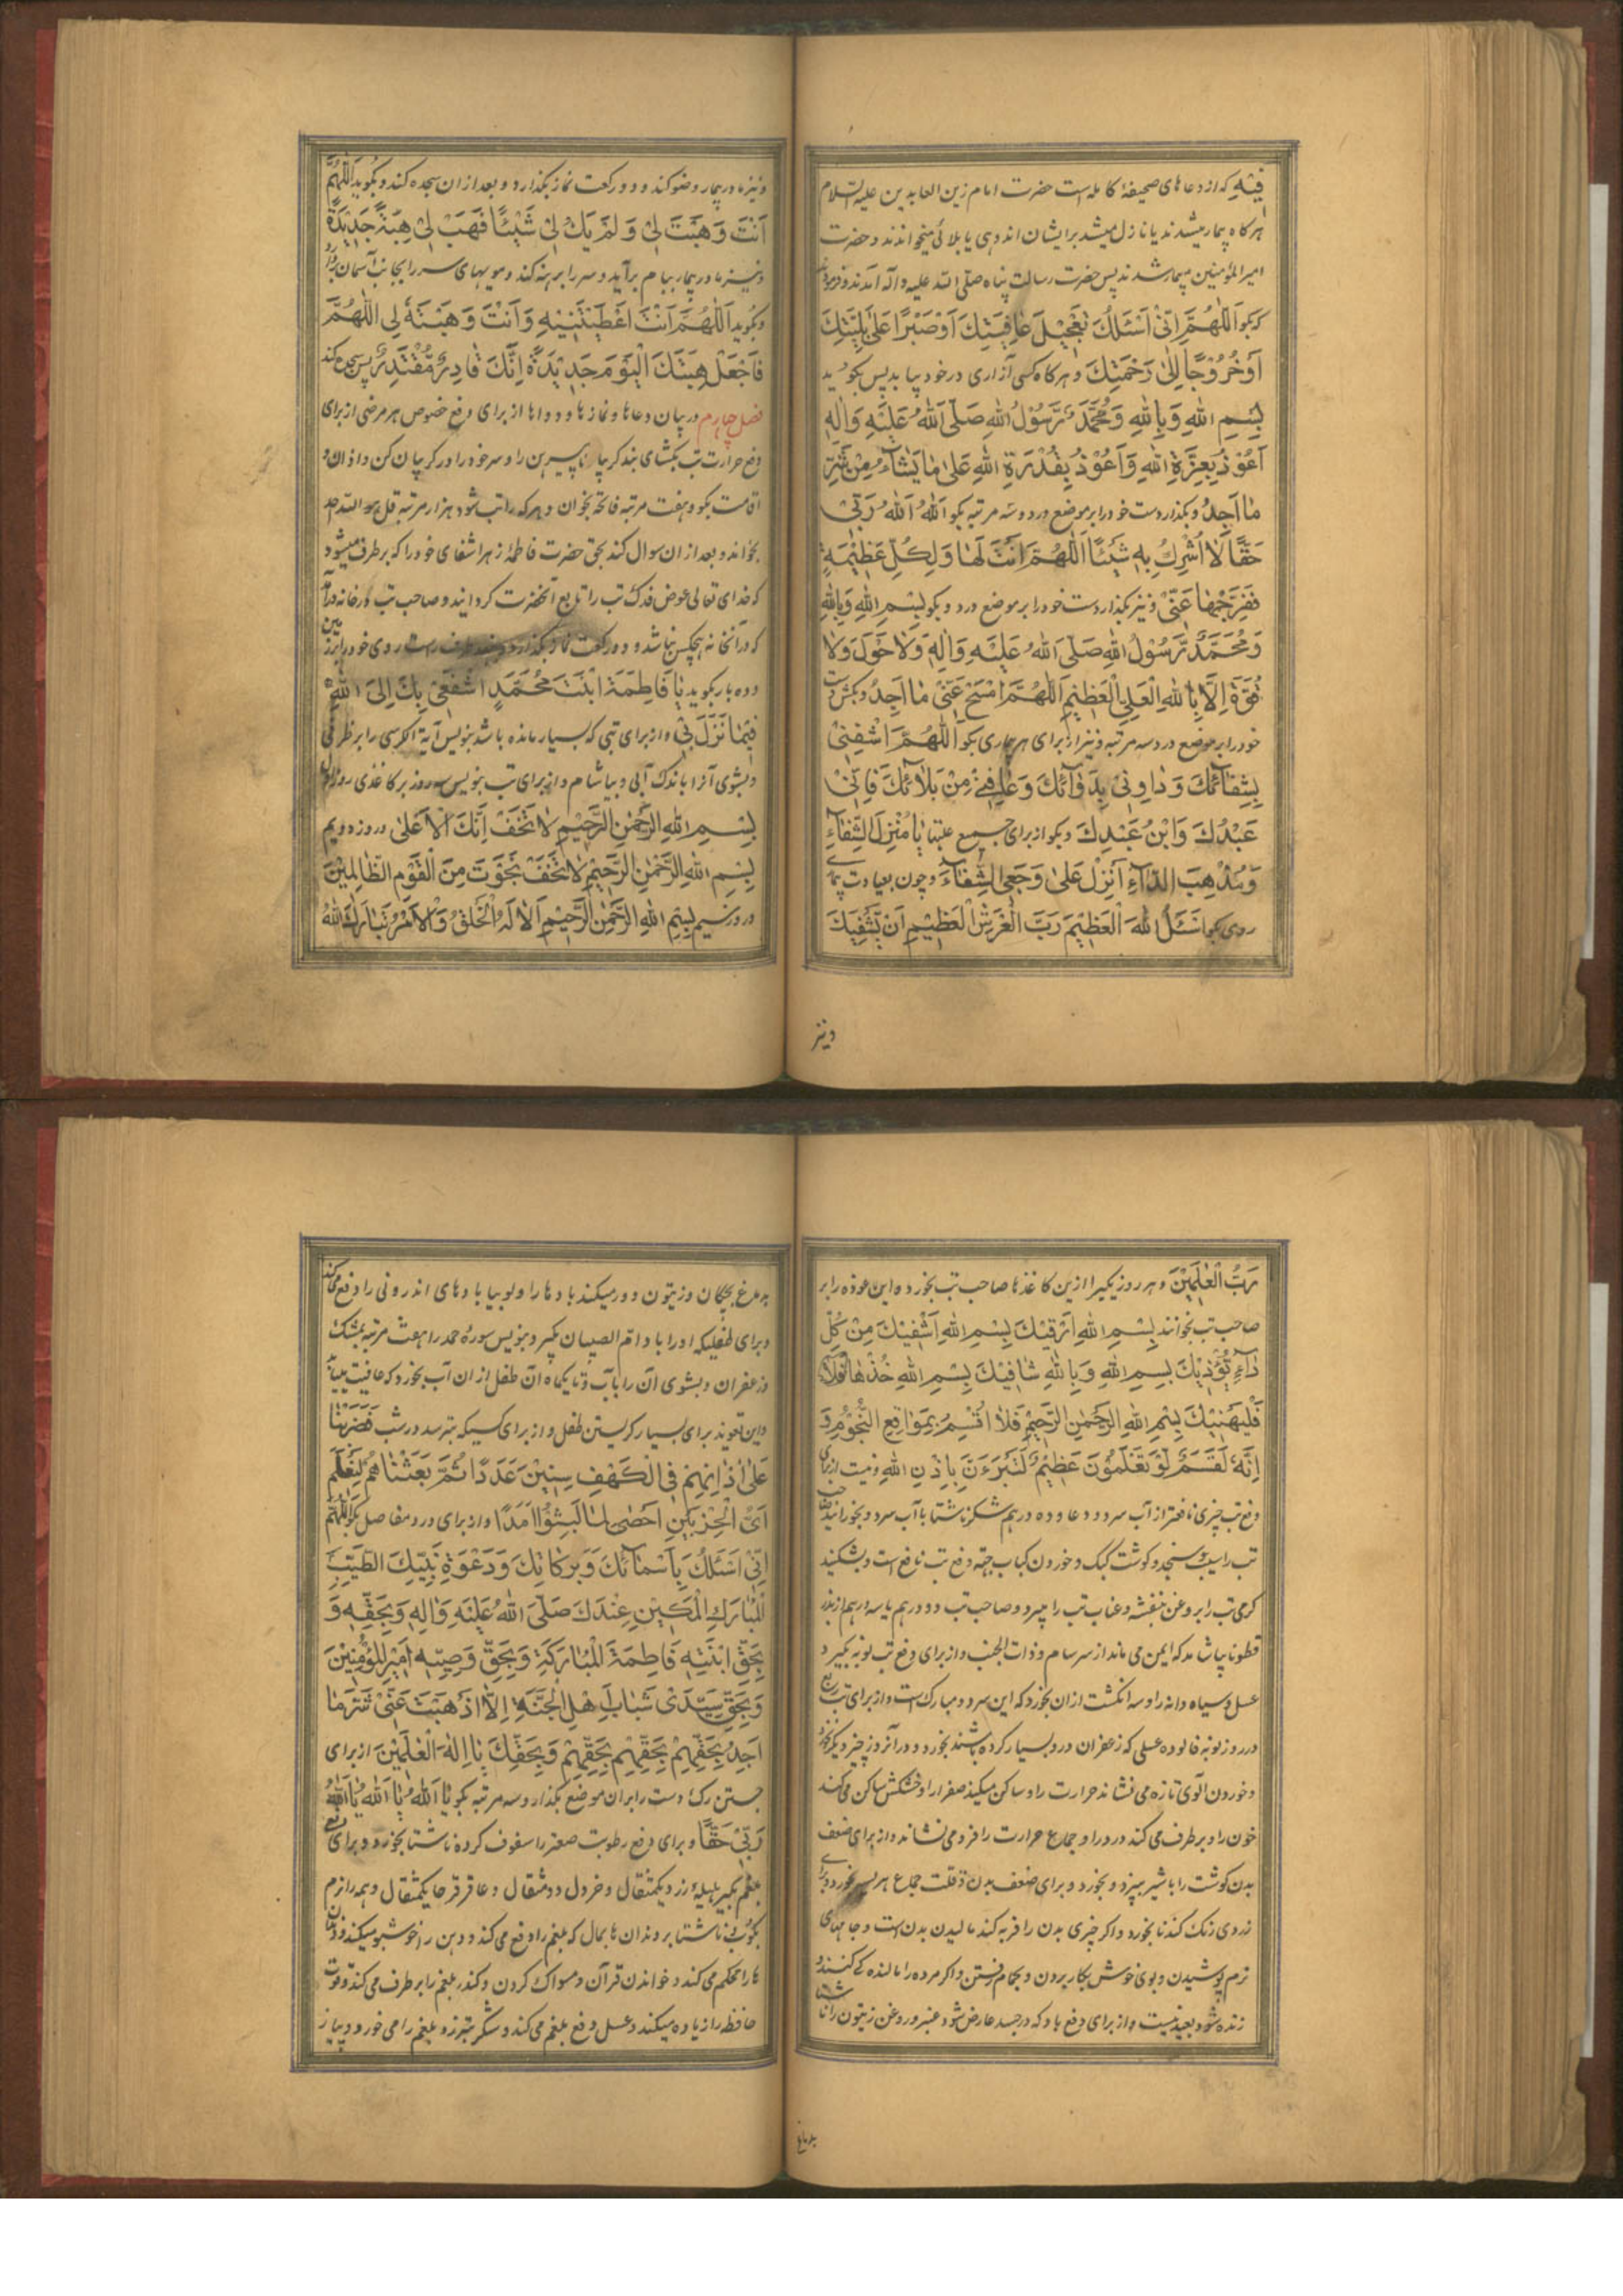 فیه که از دعاهای صحیفهٔ کامله است حضرت امام زین العابدین علیه السّلام
هرکاه بیمار میشدند یا نازل میشد برایشان اندوهی یا بلائی میخواندند و حضرت
امیرالمؤمنین بیمار شدند پس حضرت رسالت پناه صلّی الله علیه و آله آمدند و فرمودند
که بکو اَللّٰهُمَّ اِنّیْ اَسْئَلُكَ تَعْجِیْلَ عَافِیَتِكَ اَوْصَبْرًا عَلیٰ بَلِیَّتِكَ
اَوْخُرُوْجًا اِلیٰ رَحْمَتِكَ و هرکاه کسی آزاری در خود بیابد پس بکوید
بِسْمِ اللهِ وَبِاللهِ وَمُحَمَّدٌ رَّسُوْلُ اللهِ صَلَّی اللهُ عَلَیْهِ وَاٰلِهٖ
اَعُوْذُ بِعِزَّةِ اللهِ وَاَعُوْذُ بِقُدْرَةِ اللهِ عَلیٰ مٰا یَشٰآءُ مِنْ شَرِّ
مٰا اَجِدُ و بکذار دست خود را بر موضع درد و سه مرتبه بکو اَللهُ اَللهُ رَبّیْ
حَقًّا لٰا اُشْرِكُ بِهٖ شَیْئًا اَللّٰهُمَّ اَنْتَ لَهٰا وَلِکُلِّ عَظِیْمَةٍ
فَفَرِّجْهٰا عَنّیْ و نیز بکذار دست خود را بر موضع درد و بکو بِسْمِ اللهِ وَبِاللهِ
وَمُحَمَّدٌ رَّسُوْلُ اللهِ صَلَّی اللهُ عَلَیْهِ وَاٰلِهٖ وَلٰا حَوْلَ وَلٰا
قُوَّةَ اِلَّا بِاللهِ الْعَلِیِّ الْعَظِیْمِ اَللّٰهُمَّ امْسَحْ عَنّیْ مٰا اَجِدُ و بکش دست
خود را بر موضع درد سه مرتبه و نیز از برای هر بیماری بکو اَللّٰهُمَّ اشْفِنیْ
بِشِفٰآئِكَ وَدٰاوِنیْ بِدَوٰآئِكَ وَعٰافِنیْ مِنْ بَلٰآئِكَ فَاِنّیْ
عَبْدُكَ وَابْنُ عَبْدِكَ و بکو از برای جمیع علتها یٰا مُنْزِلَ الشِّفٰآءِ
وَمُذْهِبَ الدّٰآءِ اَنْزِلْ عَلیٰ وَجَعِیَ الشِّفٰآءَ و چون بعیادت بیماری
روی بکو اَسْئَلُ اللهَ الْعَظِیْمَ رَبَّ الْعَرْشِ الْعَظِیْمِ اَنْ یَّشْفِیَكَ
ونیز
و نیز مادر بیمار وضو کند و دو رکعت نماز بکذارد و بعد از ان سجده کند و بکوید اَللّٰهُمَّ
اَنْتَ وَهَبْتَ لیْ وَلَمْ یَكُ لیْ شَیْئًا فَهَبْ لیْ هِبَةً جَدِیْدَةً
و نیز مادر بیمار ببام برآید و سر را برهنه کند و مویهای سر را بجانب آسمان
و بکوید اَللّٰهُمَّ اَنْتَ اَعْطَیْتَنِیْهِ وَاَنْتَ وَهَبْتَهٗ لیْ اَللّٰهُمَّ
فَاجْعَلْ هِبَتَكَ الْیَوْمَ جَدِیْدَةً اِنَّكَ قَادِرٌ مُّقْتَدِرٌ پس سجده کند
فصل چهارم در بیان دعاها و نمازها و دواها از برای دفع خصوص هر مرضی از برای
دفع حرارت تب بکشای بند کریبان پیرهن را و سر خود را در کریبان کن و اذان و
اقامت بکو و هفت مرتبه فاتحه بخوان و هرکه را تب شود هزار مرتبه قل هو الله احد
بخواند و بعد از ان سوال کند بحق حضرت فاطمهٔ زهرا شفای خود را که برطرف میشود
که خدای تعالی عوض فدک تب را تابع آنحضرت کردانید و صاحب تب در خانه درآید
که در آنخانه هیچکس نباشد و دو رکعت نماز بکذارد و طرف راست روی خود را بر زمین
و ده بار بکوید یٰا فَاطِمَةَ ابْنَتَ مُحَمَّدٍ اَشْفَعیْ بِكَ اِلیَ اللهِ
فِیْمٰا نَزَلَ بیْ و از برای تبی که بسیار مانده باشد بنویس آیة الکرسی را بر ظرفی
و بشوی آنرا باندک آبی و بیاشام و از برای تب بنویس سه روز بر کاغذی روز اول
بِسْمِ اللهِ الرَّحْمٰنِ الرَّحِیْمِ لٰا تَخَفْ اِنَّكَ الْاَعْلیٰ و روز دویم
بِسْمِ اللهِ الرَّحْمٰنِ الرَّحِیْمِ لٰا تَخَفْ نَجَوْتَ مِنَ الْقَوْمِ الظّٰالِمِیْنَ
و روز سیم بِسْمِ اللهِ الرَّحْمٰنِ الرَّحِیْمِ اَلٰا لَهُ الْخَلْقُ وَالْاَمْرُ تَبٰارَكَ اللهُ
رَبُّ الْعٰلَمِیْنَ و هر روز یکی را ازین کاغذها صاحب تب بخورد و این عوذه را بر
صاحب تب بخوانند بِسْمِ اللهِ اَرْقِیْكَ بِسْمِ اللهِ اَشْفِیْكَ مِنْ کُلِّ
دٰآءٍ یُّؤْذِیْكَ بِسْمِ اللهِ وَبِاللهِ شٰافِیْكَ بِسْمِ اللهِ خُذْهٰا
فَلْیَهْنِیْكَ بِسْمِ اللهِ الرَّحْمٰنِ الرَّحِیْمِ فَلٰا اُقْسِمُ بِمَوٰاقِعِ النُّجُوْمِ وَ
اِنَّهٗ لَقَسَمٌ لَّوْ تَعْلَمُوْنَ عَظِیْمٌ لَتَبْرَءَنَّ بِاِذْنِ اللهِ و نیست از برای
دفع تب چیزی نافعتر از آب سرد و دعا و ده درهم شکر ناشتا با آب سرد و بخورانید صاحب
تب را سیب و سنجد و کوشت کبک و خوردن کباب جهة دفع تب نافع است و بشکنید
کرمی تب را بروغن بنفشه و عناب تب را میبرد و صاحب تب دو درهم یا سه درهم از بذر
قطونا بیاشامد که ایمن می ماند از سرسام و ذات الجنب و از برای دفع تب نوبه بکیرد
عسل و سیاه دانه را و سه انکشت ازان بخورد که این سرد و مبارک است و از برای تب ربع
در روز نوبه فالوده عسلی که زعفران درو بسیار کرده باشند بخورد و در آنروز چیز دیکر نخورد
و خوردن آلوی تازه می نشاند حرارت را و ساکن میکند صفرا را و خشکش ساکن می کند
خون را و برطرف می کند درد را و جماع حرارت را فرو می نشاند و از برای ضعف
بدن کوشت را با شیر بپزد و بخورد و برای ضعف بدن و قلت جماع هریسه بخورد و برای
زردی رنک کندنا بخورد و اکر چیزی بدن را فربه کند مالیدن بدن است و جامهای
نرم پوشیدن و بوی خوش بکار بردن و بحمام رفتن و اکر مرده را مالنده کی کنند و
زنده شود بعید نیست و از برای دفع باد که در جسد عارض شود عنبر و روغن زیتون را ناشتا
بدماغ
بدماغ بچکان و زیتون دور میکند بادها را و لوبیا بادهای اندرونی را دفع میکند
و برای طفلیکه او را باد ام الصبیان بکیرد بنویس سورهٔ حمد را هفت مرتبه بمشک
و زعفران و بشوی آن را بآب و تا یکماه آن طفل ازان آب بخورد که عافیت بیابد
و این تعویذ برای بسیار کریستن طفل و از برای کسیکه بترسد در شب فَضَرَبْنٰا
عَلیٰ اٰذٰانِهِمْ فِی الْکَهْفِ سِنِیْنَ عَدَدًا ثُمَّ بَعَثْنٰاهُمْ لِنَعْلَمَ
اَیُّ الْحِزْبَیْنِ اَحْصیٰ لِمٰا لَبِثُوْا اَمَدًا و از برای درد مفاصل بکو اَللّٰهُمَّ
اِنّیْ اَسْئَلُكَ بِاَسْمٰآئِكَ وَبَرَکٰاتِكَ وَدَعْوَةِ نَبِیِّكَ الطَّیِّبِ
الْمُبٰارَكِ الْمَکِیْنِ عِنْدَكَ صَلَّی اللهُ عَلَیْهِ وَاٰلِهٖ وَبِحَقِّهٖ وَ
بِحَقِّ ابْنَتِهٖ فَاطِمَةَ الْمُبٰارَکَةِ وَبِحَقِّ وَصِیِّهٖ اَمِیْرِ الْمُؤْمِنِیْنَ
وَبِحَقِّ سَیِّدَیْ شَبٰابِ اَهْلِ الْجَنَّةِ اِلّٰا اَذْهَبْتَ عَنّیْ شَرَّ مٰا
اَجِدُ بِحَقِّهِمْ بِحَقِّهِمْ بِحَقِّهِمْ وَبِحَقِّكَ یٰا اِلٰهَ الْعٰلَمِیْنَ از برای
جستن رک دست را بران موضع بکذار و سه مرتبه بکو یٰا اَللهُ یٰا اَللهُ یٰا اَللهُ
رَبّیْ حَقًّا و برای دفع رطوبت صعتر را سفوف کرده ناشتا بخورد و برای دفع
بلغم بکیر هلیلهٔ زرد یکمثقال و خردل دو مثقال و عاقرقرحا یکمثقال و همه را نرم
بکوب و ناشتا بر دندان ها بمال که بلغم را دفع می کند و دهن را خوشبو میکند و دندان
ها را محکم می کند و خواندن قرآن و مسواک کردن و کندر بلغم را برطرف می کند و قوت
حافظه را زیاده میکند و عسل دفع بلغم می کند و شکر تبرزد بلغم را می خورد و پیاز